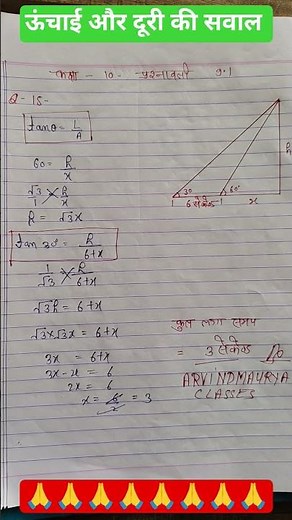 ऊंचाई और दूरी की सवाल
कक्षा - 10 - प्रश्नावली 9.1
Q - 15 -
tanθ = L/A
60 = R/x
√3/1 = R/x
R = √3x
tan 30 = R/6+x
1/√3 = R/6+x
√3R = 6+x
√3×√3x = 6+x
3x = 6+x
3x-x = 6
2x = 6
x = 6/2 = 3
30 60°
6 सेकेंड x
R
कुल लगा समय
= 3 सेकेंड
ARVINDMAURYA
CLASSES
🙏🙏🙏🙏🙏🙏🙏🙏